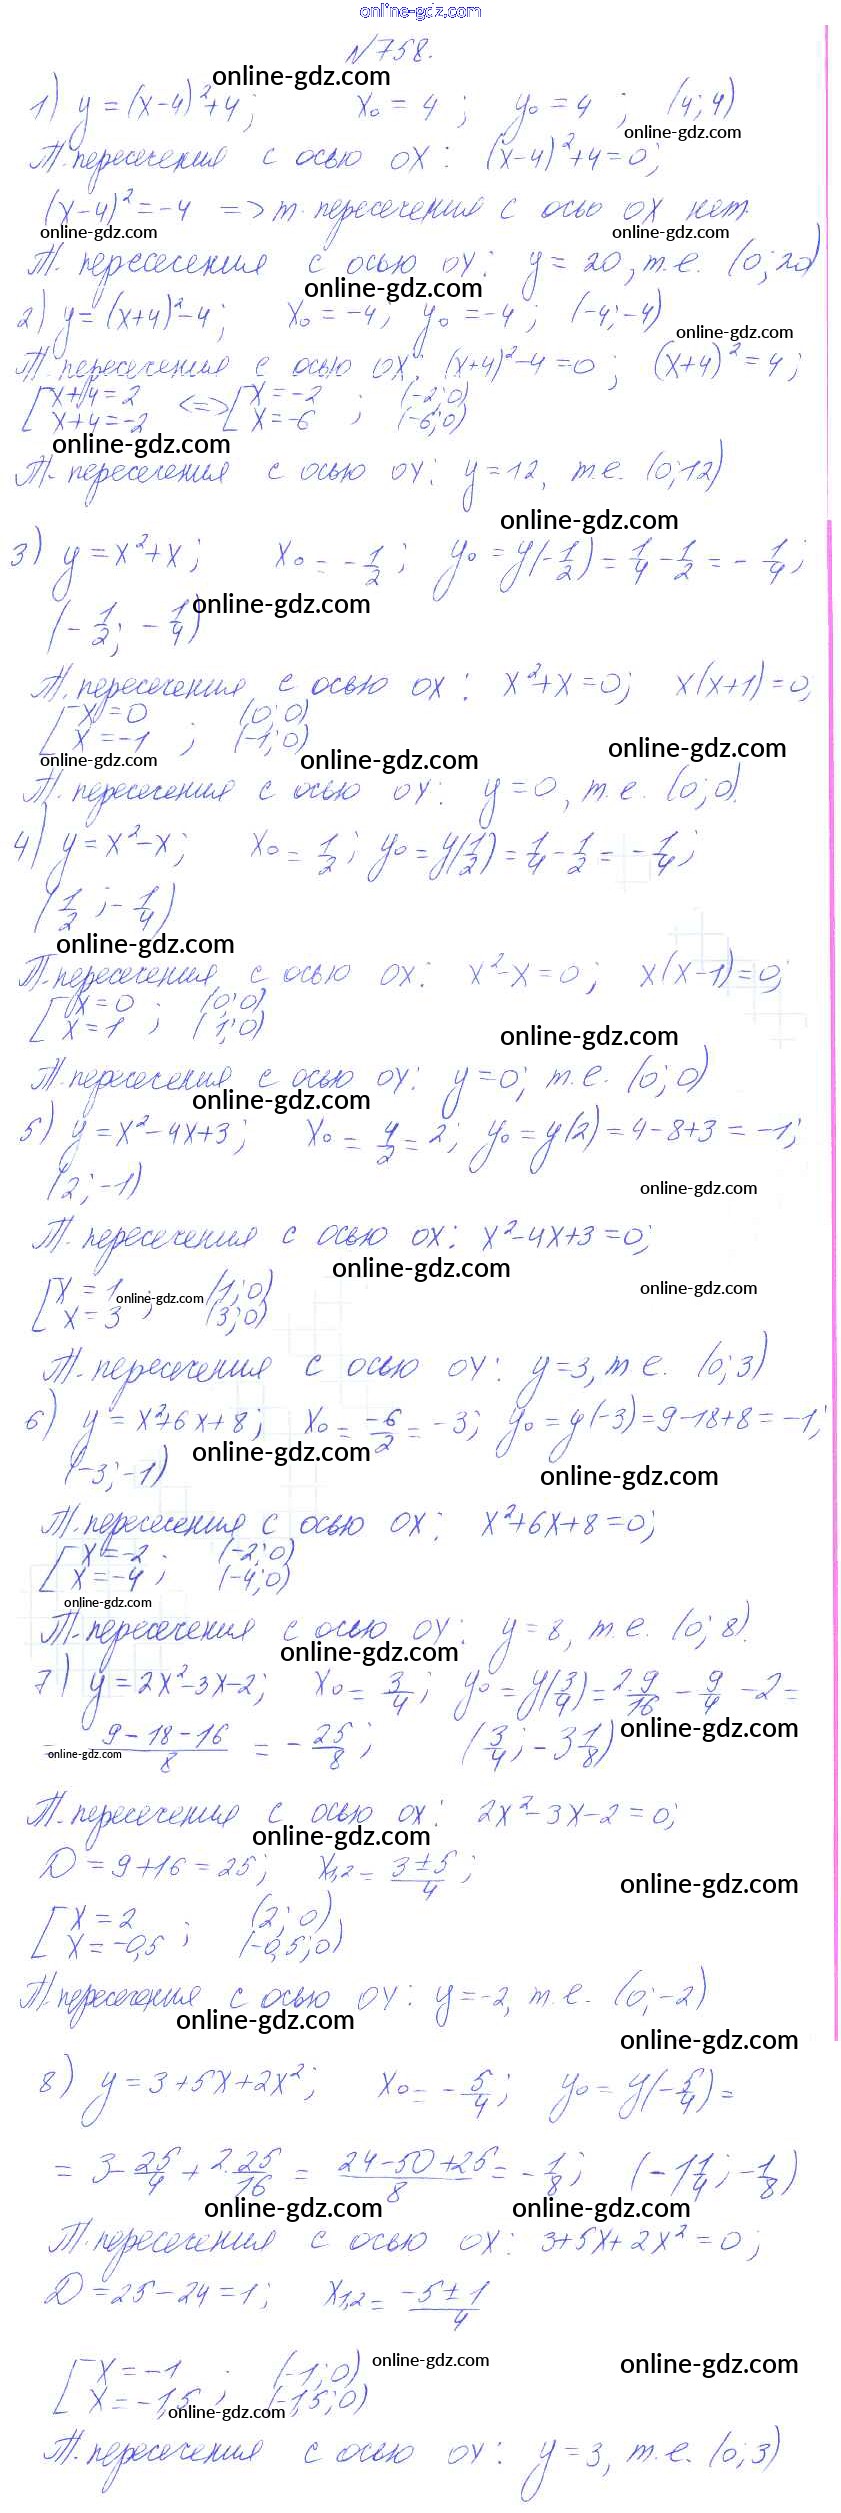 online-gdz.com
№758.
online-gdz.com
1) y = (x-4)²+4; x₀ = 4 ; y₀ = 4 ; (4; 4)
online-gdz.com
Т. пересечения с осью OX: (x-4)²+4=0;
(x-4)² = -4 => т. пересечения с осью OX нет.
online-gdz.com online-gdz.com
Т. пересечения с осью OY: y = 20, т.е. (0; 20)
online-gdz.com
2) y = (x+4)²-4; x₀ = -4; y₀ = -4; (-4; -4)
online-gdz.com
Т. пересечения с осью OX: (x+4)²-4=0; (x+4)²=4;
[x+4=2 <=> [x=-2 ; (-2; 0)
x+4=-2 x=-6 (-6; 0)
online-gdz.com
Т. пересечения с осью OY: y=12, т.е. (0; 12)
online-gdz.com
3) y = x²+x; x₀ = -1/2; y₀ = y(-1/2) = 1/4 - 1/2 = -1/4;
online-gdz.com
(-1/2; -1/4)
Т. пересечения с осью OX: x²+x=0; x(x+1)=0;
[x=0 ; (0; 0)
x=-1 (-1; 0)
online-gdz.com online-gdz.com online-gdz.com
Т. пересечения с осью OY: y=0, т.е. (0; 0).
4) y = x²-x; x₀ = 1/2; y₀ = y(1/2) = 1/4 - 1/2 = -1/4;
(1/2; -1/4)
online-gdz.com
Т. пересечения с осью OX: x²-x=0; x(x-1)=0;
[x=0 ; (0; 0)
x=1 (1; 0)
online-gdz.com
Т. пересечения с осью OY: y=0; т.е. (0; 0)
online-gdz.com
5) y = x²-4x+3; x₀ = 4/2 = 2; y₀ = y(2) = 4-8+3 = -1;
(2; -1)
online-gdz.com
Т. пересечения с осью OX: x²-4x+3=0;
online-gdz.com
online-gdz.com
[x=1 ; (1; 0)
x=3 (3; 0)
online-gdz.com
Т. пересечения с осью OY: y=3, т.е. (0; 3)
6) y = x²+6x+8; x₀ = -6/2 = -3; y₀ = y(-3) = 9-18+8 = -1;
online-gdz.com
(-3; -1)
online-gdz.com
Т. пересечения с осью OX: x²+6x+8=0;
[x=-2 ; (-2; 0)
x=-4 (-4; 0)
online-gdz.com
Т. пересечения с осью OY: y=8, т.е. (0; 8).
online-gdz.com
7) y = 2x²-3x-2; x₀ = 3/4; y₀ = y(3/4) = 2·9/16 - 9/4 - 2 =
online-gdz.com
= (9-18-16)/8 = -25/8; (3/4; -3 1/8)
online-gdz.com
Т. пересечения с осью OX: 2x²-3x-2=0;
online-gdz.com
D = 9+16 = 25; x₁,₂ = (3±5)/4;
online-gdz.com
[x=2 ; (2; 0)
x=-0,5 (-0,5; 0)
Т. пересечения с осью OY: y=-2, т.е. (0; -2)
online-gdz.com
online-gdz.com
8) y = 3+5x+2x²; x₀ = -5/4; y₀ = y(-5/4) =
= 3 - 25/4 + 2·25/16 = (24-50+25)/8 = -1/8; (-1 1/4; -1/8)
online-gdz.com online-gdz.com
Т. пересечения с осью OX: 3+5x+2x²=0;
D = 25-24 = 1; x₁,₂ = (-5±1)/4
online-gdz.com online-gdz.com
[x=-1 ; (-1; 0)
x=-1,5 (-1,5; 0)
online-gdz.com
Т. пересечения с осью OY: y=3, т.е. (0; 3)